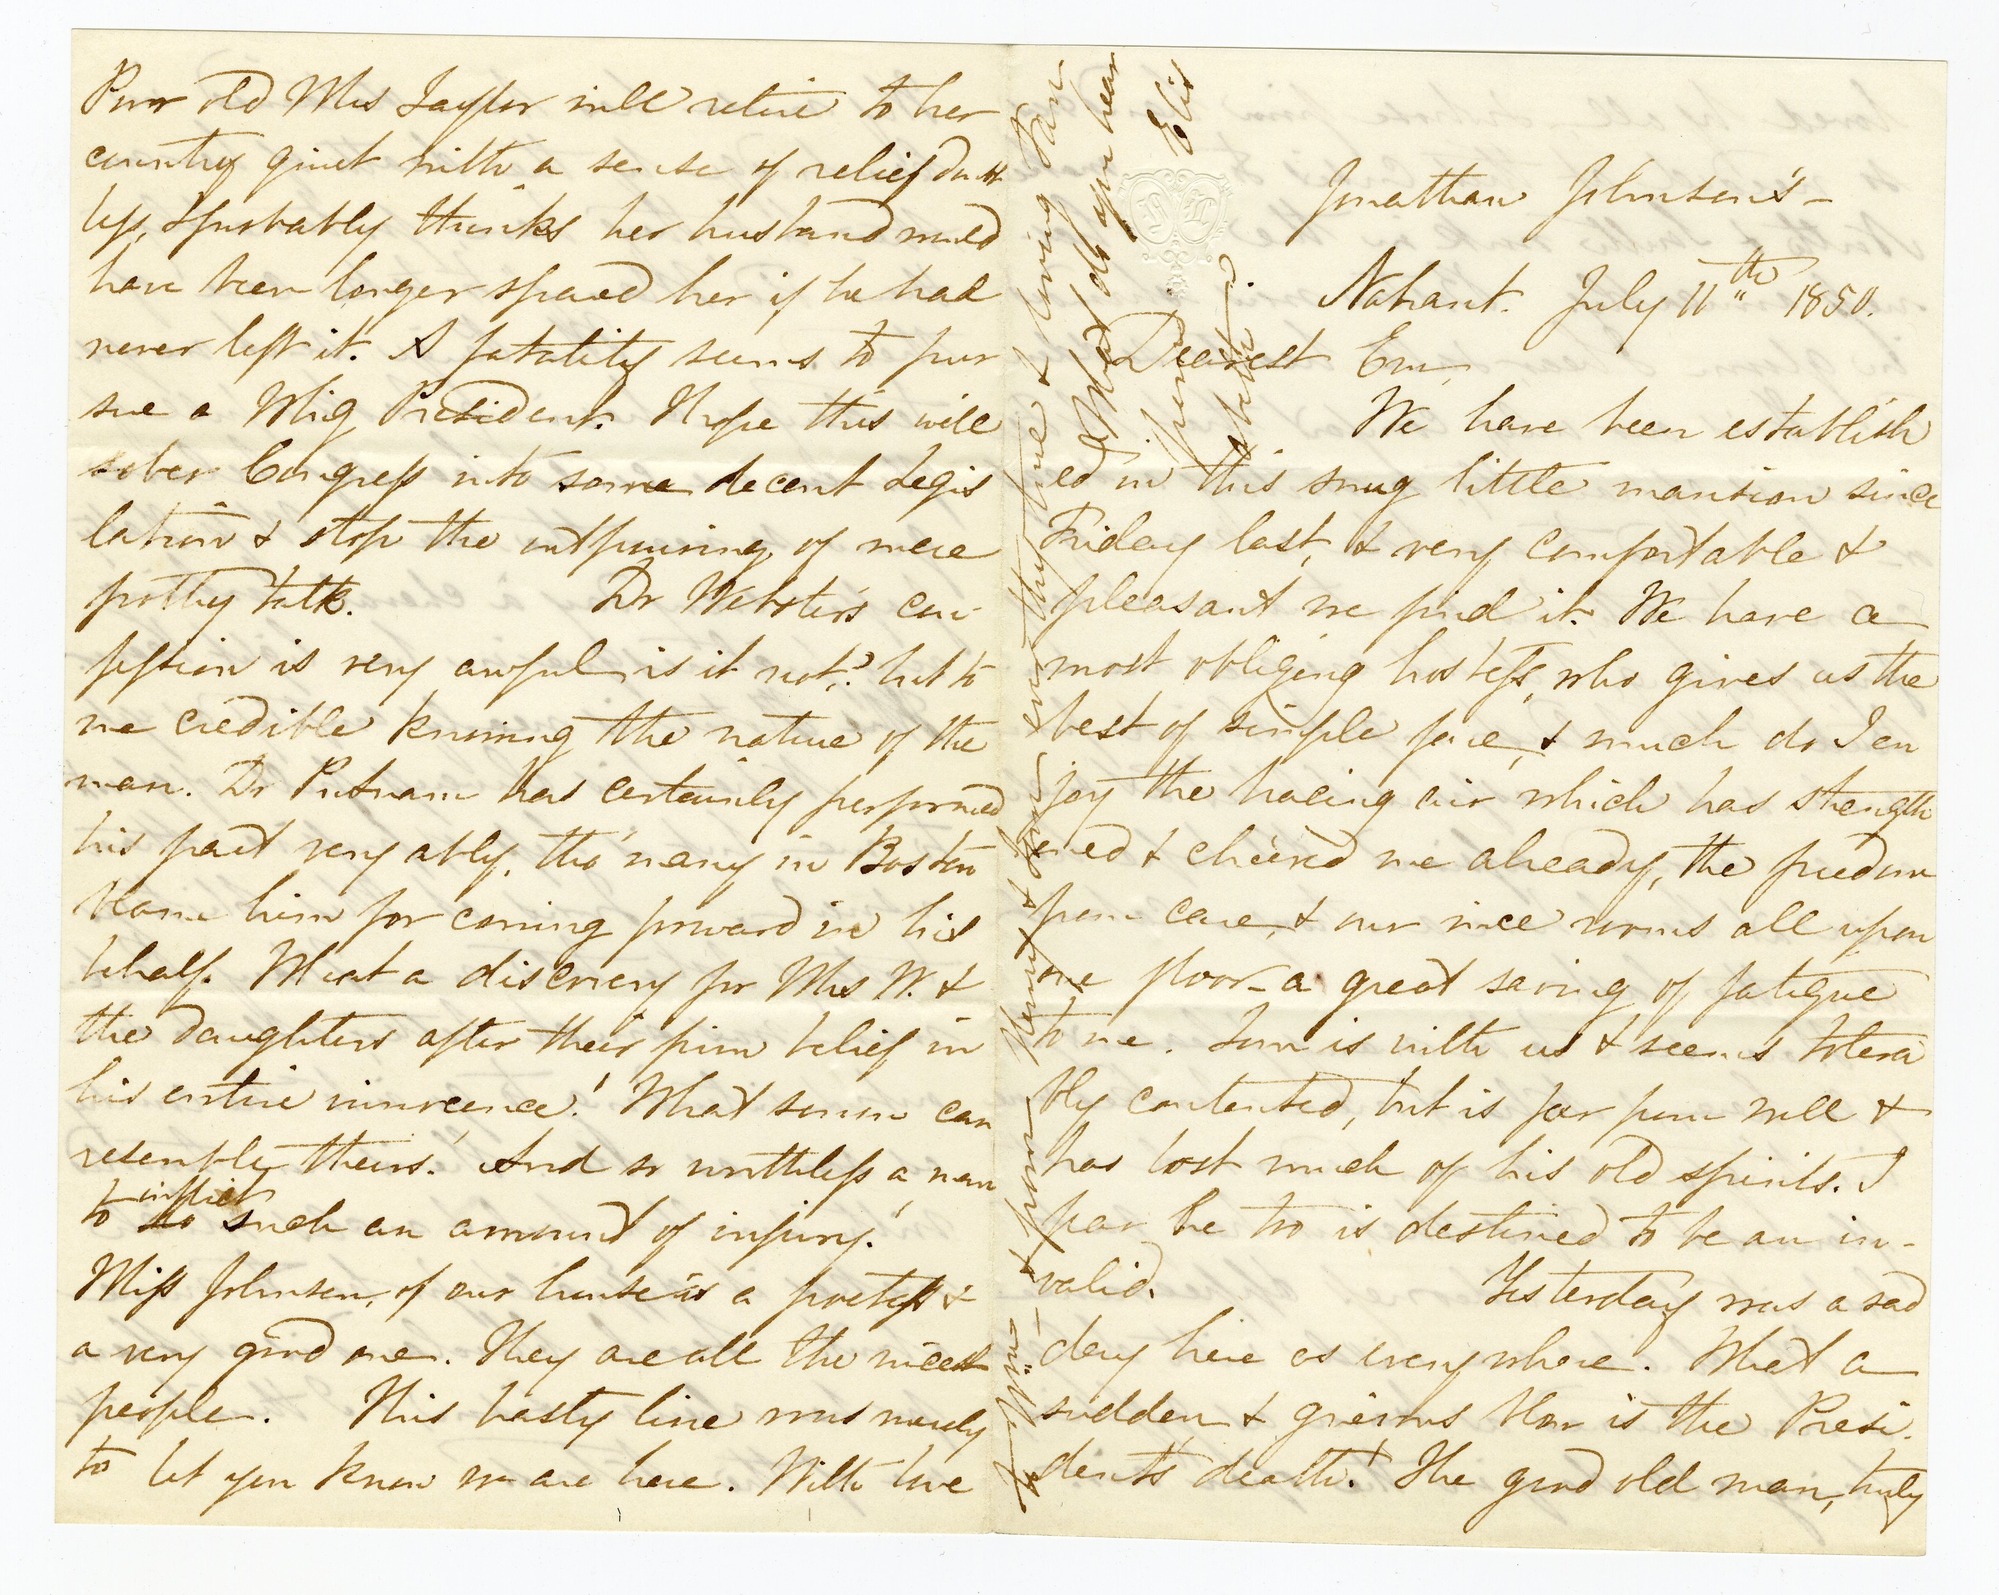 Jonathan Johnson's –
Nahant. July 11th 1850.
Dearest Em,
We have been establish
ed in this snug little mansion since
Friday last, & very comfortable &
pleasant we find it. We have a
most obliging hostess, who gives us the
best of simple fare, & much do I en
joy the bracing air which has strength
ened & cheered me already, the freedom
from care, & our nice rooms all upon
one floor – a great saving of fatigue
to me. Tom is with us & seems tolera
bly contented, but is far from well &
has lost much of his old spirits. I
fear he too is destined to be an in-
valid. Yesterday was a sad
day here as everywhere. What a
sudden & grievous blow is the Presi-
dent's death! The good old man, truly
Poor old Mrs Taylor will retire to her
country quiet with a sense of relief doubt
less, & probably thinks her husband would
have been longer spared her if he had
never left it. A fatality seems to pur
sue a Whig President. I hope this will
sober Congress into some decent Legis
lation & stop the outpouring of mere
frothy talk. Dr Webster's con-
fession is very awful is it not? but to
me credible knowing the nature of the
man. Dr Putnam has certainly performed
his part very ably, tho' many in Boston
blame him for coming forward in his
behalf. What a discovery for Mrs W. &
the daughters after their firm belief in
his entire innocence! What sorrow can
resemble theirs! And so worthless a man
to inflict such an amount of injury!
Miss Johnson, of our house is a poetess &
a very good one. They are all the nicest
people. This hasty line was merely
to let you know we are here. With love
to Wm – & from Henry & Tom ever thy true & loving
What do you hear
from